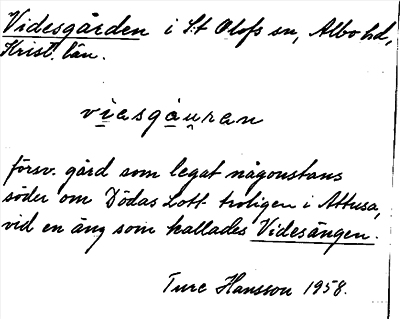 Videsgården i S:t Olofs sn, Albo hd,
Krist. län.
försv. gård som legat någonstans
söder om Dödas Lott troligen i Attusa,
vid en äng som kallades Videsängen.
Ture Hansson 1958.